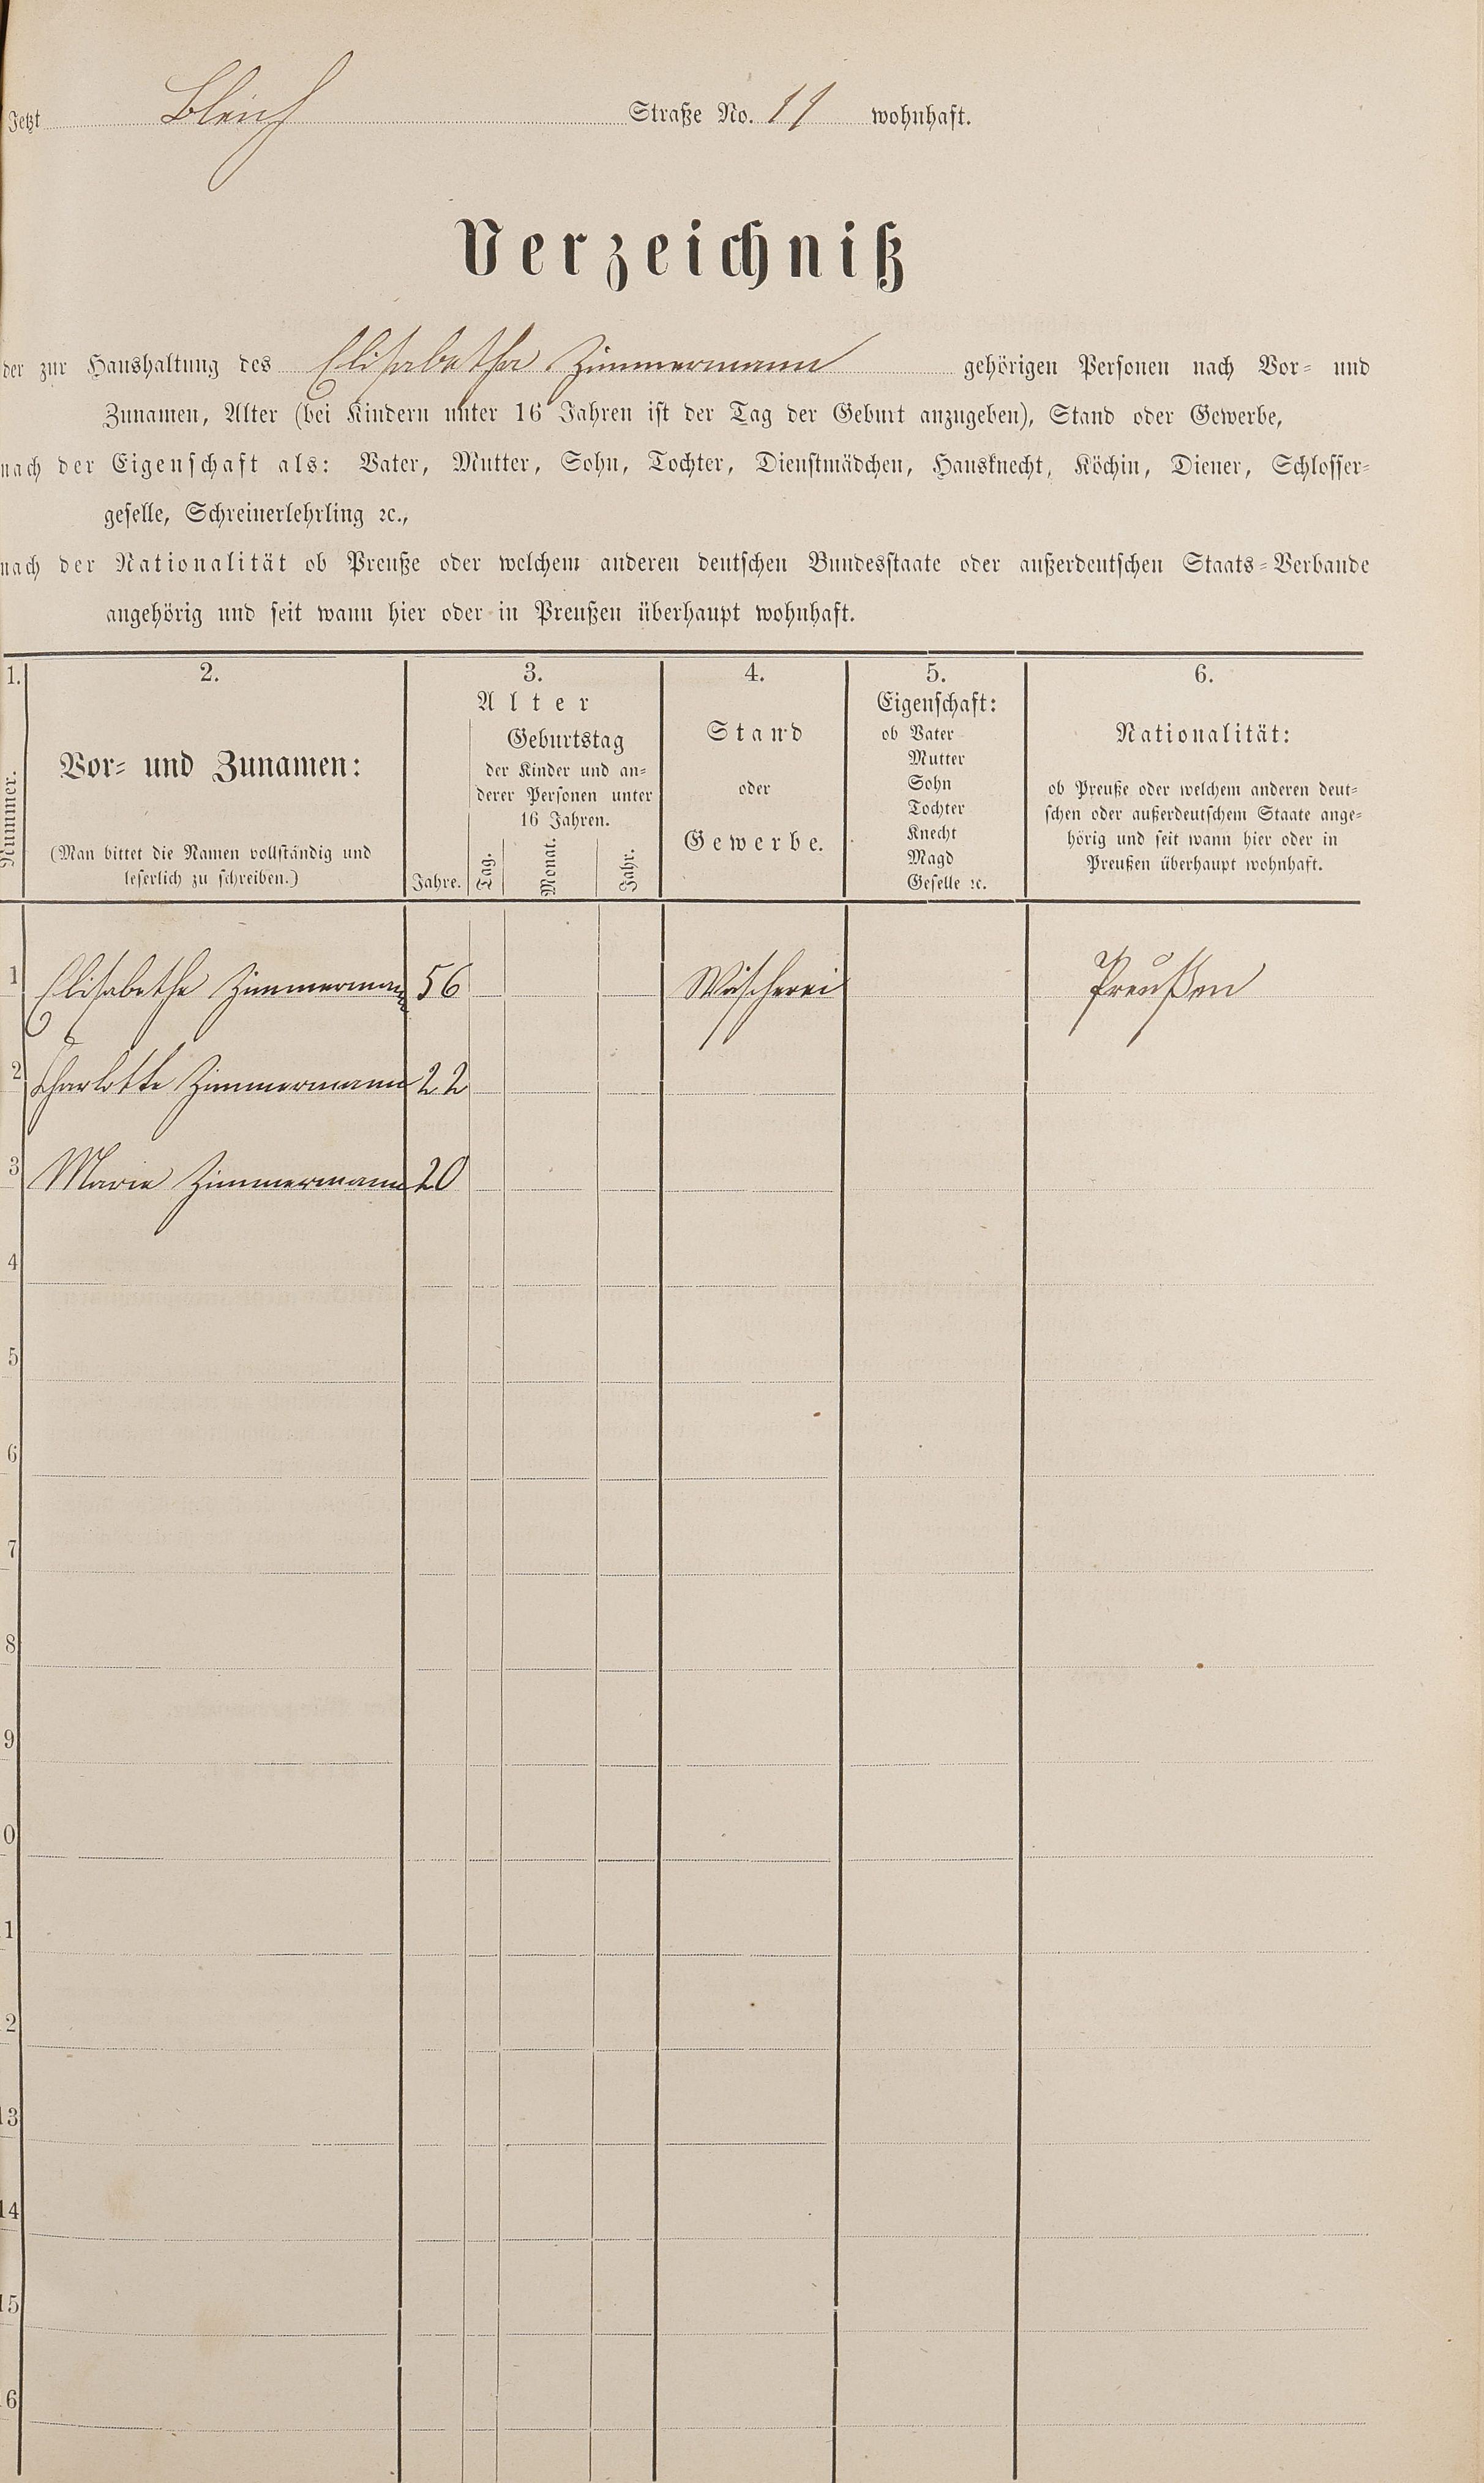 Jetzt Bleich Straße No. 11 wohnhaft.
Verzeichniß
der zur Haushaltung des Elisabetha Zimmermann gehörigen Personen nach Vor- und
Zunamen, Alter (bei Kindern unter 16 Jahren ist der Tag der Geburt anzugeben), Stand oder Gewerbe,
nach der Eigenschaft als: Vater, Mutter, Sohn, Tochter, Dienstmädchen, Hausknecht, Köchin, Diener, Schlosser-
geselle, Schreinerlehrling ꝛc.,
nach der Nationalität ob Preuße oder welchem anderen deutschen Bundesstaate oder außerdeutschen Staats-Verbande
angehörig und seit wann hier oder in Preußen überhaupt wohnhaft.
1. 2. 3. 4. 5. 6.
Nummer.
Vor- und Zunamen:
(Man bittet die Namen vollständig und
leserlich zu schreiben.)
Alter
Jahre.
Geburtstag
der Kinder und an-
derer Personen unter
16 Jahren.
Tag. Monat. Jahr.
Stand
oder
Gewerbe.
Eigenschaft:
ob Vater
Mutter
Sohn
Tochter
Knecht
Magd
Geselle ꝛc.
Nationalität:
ob Preuße oder welchem anderen deut-
schen oder außerdeutschem Staate ange-
hörig und seit wann hier oder in
Preußen überhaupt wohnhaft.
1 Elisabethe Zimmermann 56 Wascherei Preußen
2 Charlotte Zimmermann 22
3 Marie Zimmermann 20
4
5
6
7
8
9
0
1
2
13
14
15
6